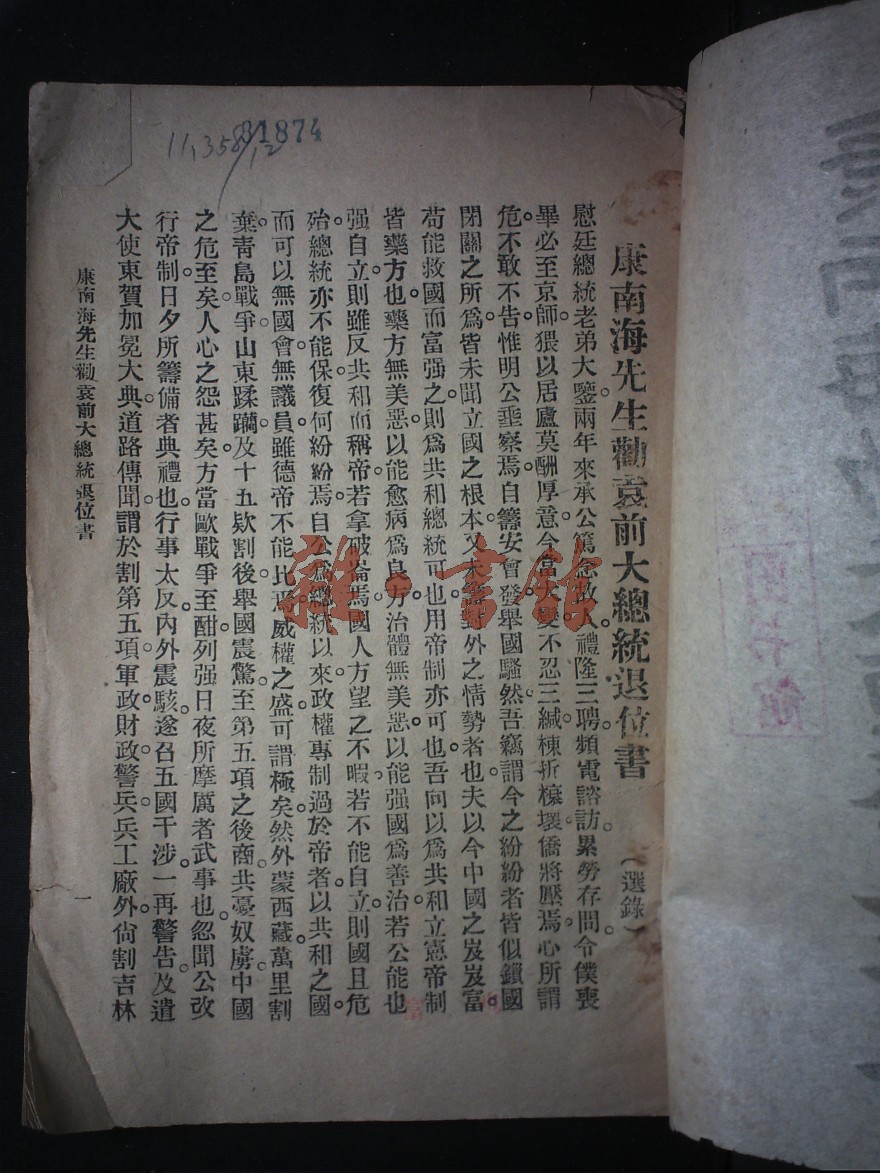 康南海先生勸袁前大總統退位書（選錄）
慰廷總統老弟大鑒。兩年來承公篤念故人。禮隆三聘。頻電諮訪。累勞存問。令僕喪
畢必至京師。猥以居廬莫酬厚意。今當大變。不忍三緘。棟折榱壞。僑將壓焉。心所謂
危。不敢不告。惟明公垂察焉。自籌安會發。舉國騷然。吾竊謂今之紛紛者。皆似鎖國
閉關之所爲。皆未聞立國之根本。又未籌對外之情勢者也。夫以今中國之岌岌。
苟能救國而富强之。則爲共和總統可也。用帝制亦可也。吾向以爲共和立憲帝制
皆藥方也。藥方無美惡。以能愈病爲良方。治體無美惡。以能强國爲善治。若公能
强自立。則雖反共和而稱帝。若拿破崙焉。國人方望之不暇。若不能自立。則國且危
殆。總統亦不能保。復何紛紛焉。自公爲總統以來。政權專制過於帝者。以共和之國。
而可以無國會無議員。雖德帝不能比焉。威權之盛。可謂極矣。然外蒙西藏萬里割
棄。青島戰爭。山東蹂躪。及十五欵割後。舉國震驚。至第五項之後商。共憂奴虜。中國
之危至矣。人心之怨甚矣。方當歐戰爭至酣。列强日夜所摩厲者武事也。忽聞公改
行帝制。日夕所籌備者典禮也。行事太反。內外震駭。遂召五國干涉。一再警告。及遣
大使東賀加冕大典。道路傳聞。謂於割第五項軍政財政警兵兵工廠外。尙割吉林
康南海先生勸袁前大總統退位書
一
11,358/12
81874
雜·書館